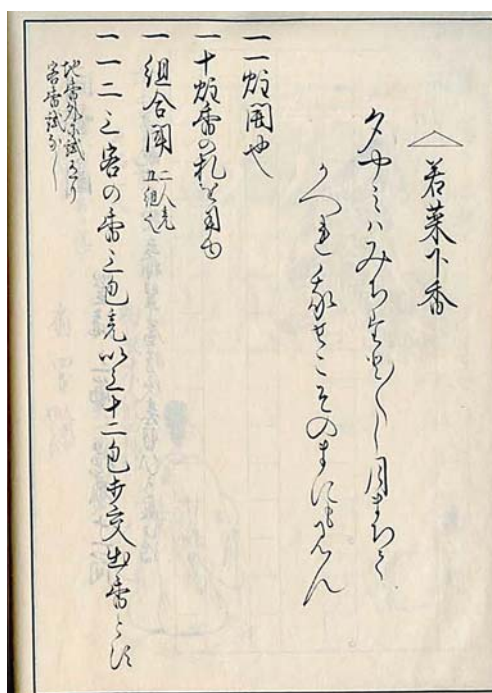 若菜下香
夕やミハみち堂と〱し月まちて
かへれ我せこそのまにもみん
一一炷開也
一十炷香の札を用由
一組合闘 二人充 五組也
一一二三客の香三包充以上十二包打交出香とす
地香外ニ試有り
客香試なし